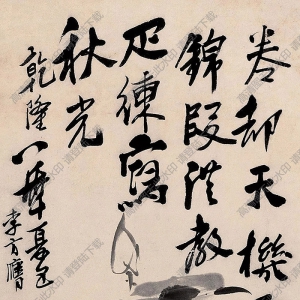 卷却天機
錦段從教
疋練寫
秋光
乾隆八年夏
李方膺